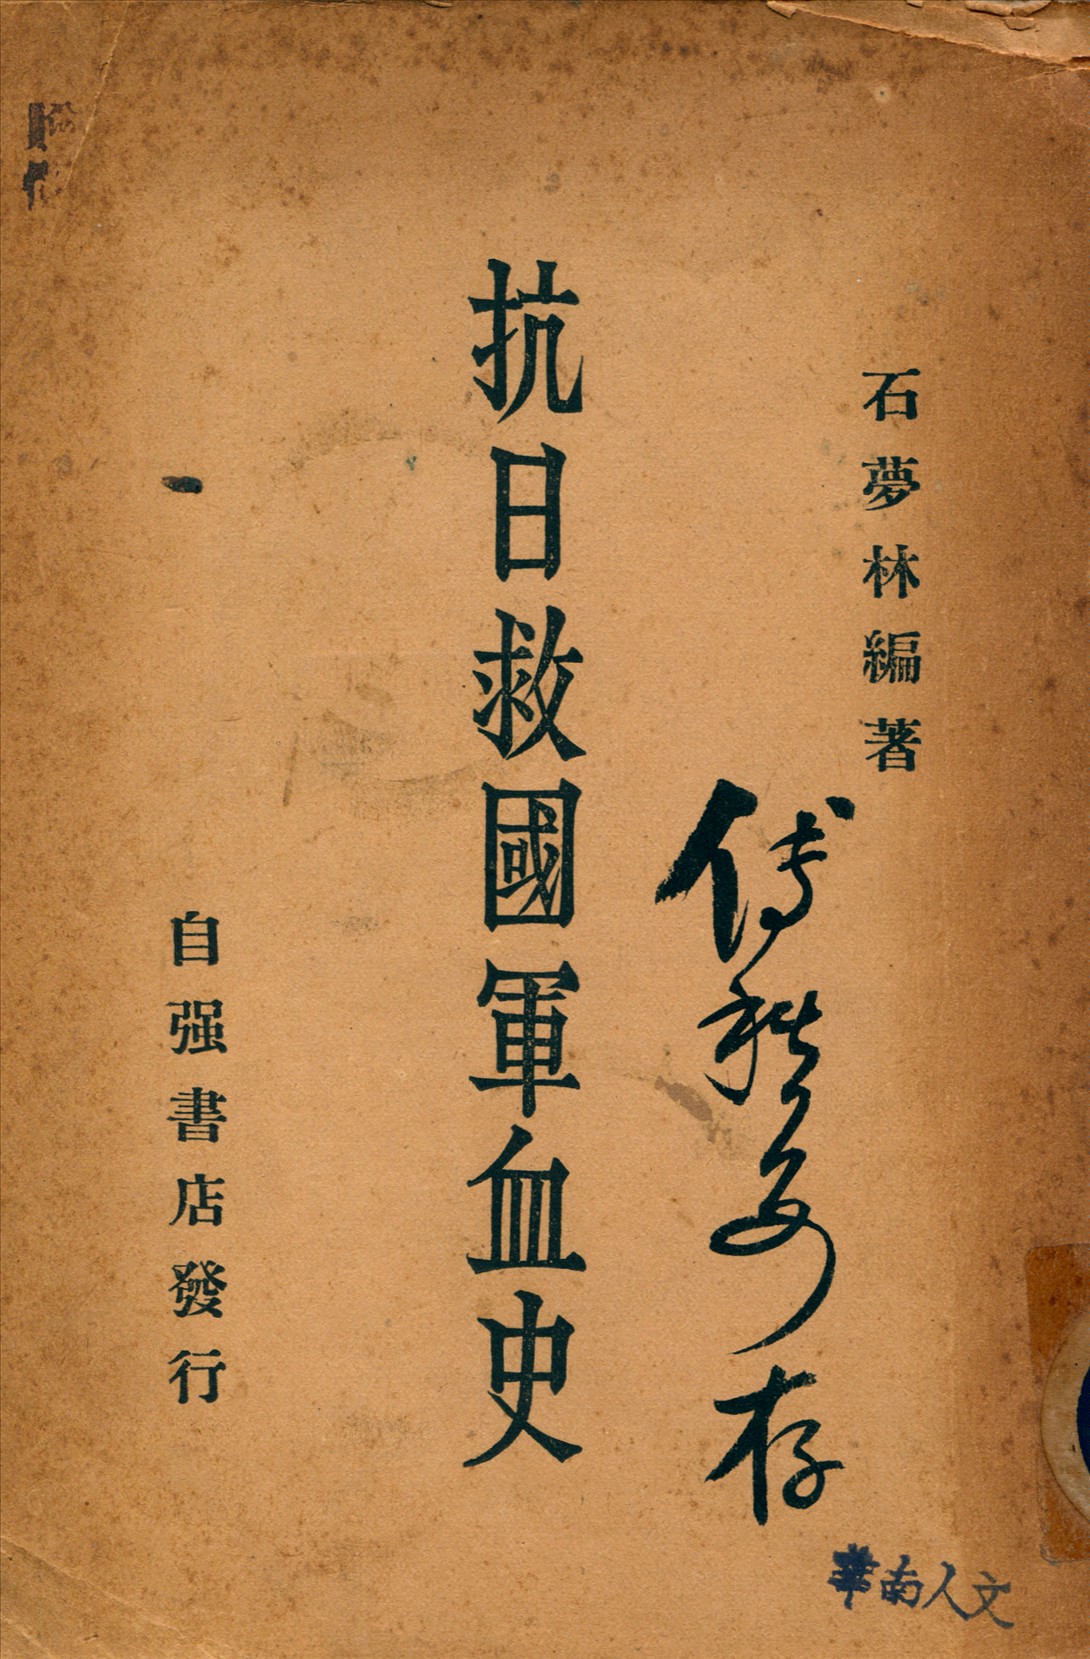 石夢林編著
抗日救國軍血史
自强書店發行
傅
存
華南人文